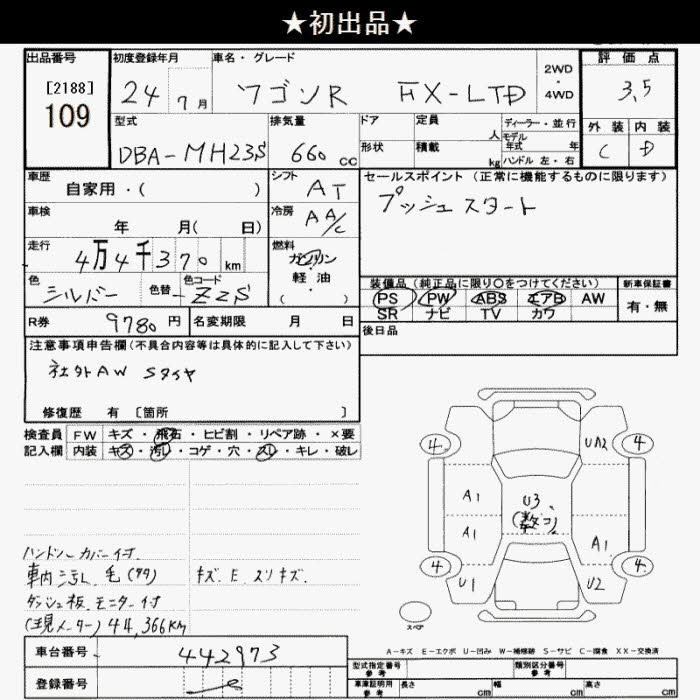 ★初出品★
出品番号 初度登録年月 車名・グレード 2WD・4WD 評価点
[2188] 109 24 7月 ワゴンR FX-LTD 3.5
型式 排気量 ドア 定員 人 ディーラー・並行 外装 内装
DBA-MH23S 660 CC 形状 積載 kg モデル年式 年 ハンドル 左・右 C D
車歴 自家用・( ) シフト AT セールスポイント (正常に機能するものに限ります)
車検 年 月( 日) 冷房 AA/C プッシュスタート
走行 4万4千370 km 燃料 ガソリン・軽油・( )
色 シルバー 色替 - 色コード Z2S 装備品 (純正品に限り○をつけてください) 新車保証書
PS PW ABS エアB AW 有・無
SR ナビ TV カワ
R券 9780 円 名変期限 月 日 後日品
注意事項申告欄 (不具合内容等は具体的に記入して下さい)
社外AW Sタイヤ
修復歴 有 〔箇所 〕
検査員 FW キズ・飛石・ヒビ割・リペア跡・×要
記入欄 内装 キズ・汚レ・コゲ・穴・スレ・キレ・破レ
4 4 UA2
A1 U3
A1 A1
4 4 U1 U2
ハンドルカバー付
車内汚レ 毛 キズ.E.スリキズ
ダッシュ板.モニター付
(現メーター) 44,366km
スペア
A-キズ E-エクボ U-凹み W-補修跡 S-サビ C-腐食 XX-交換済
車台番号 442973
型式指定番号 参考 類別区分番号 参考
登録番号
車庫証明用 参考 長さ cm 幅 cm 高さ cm